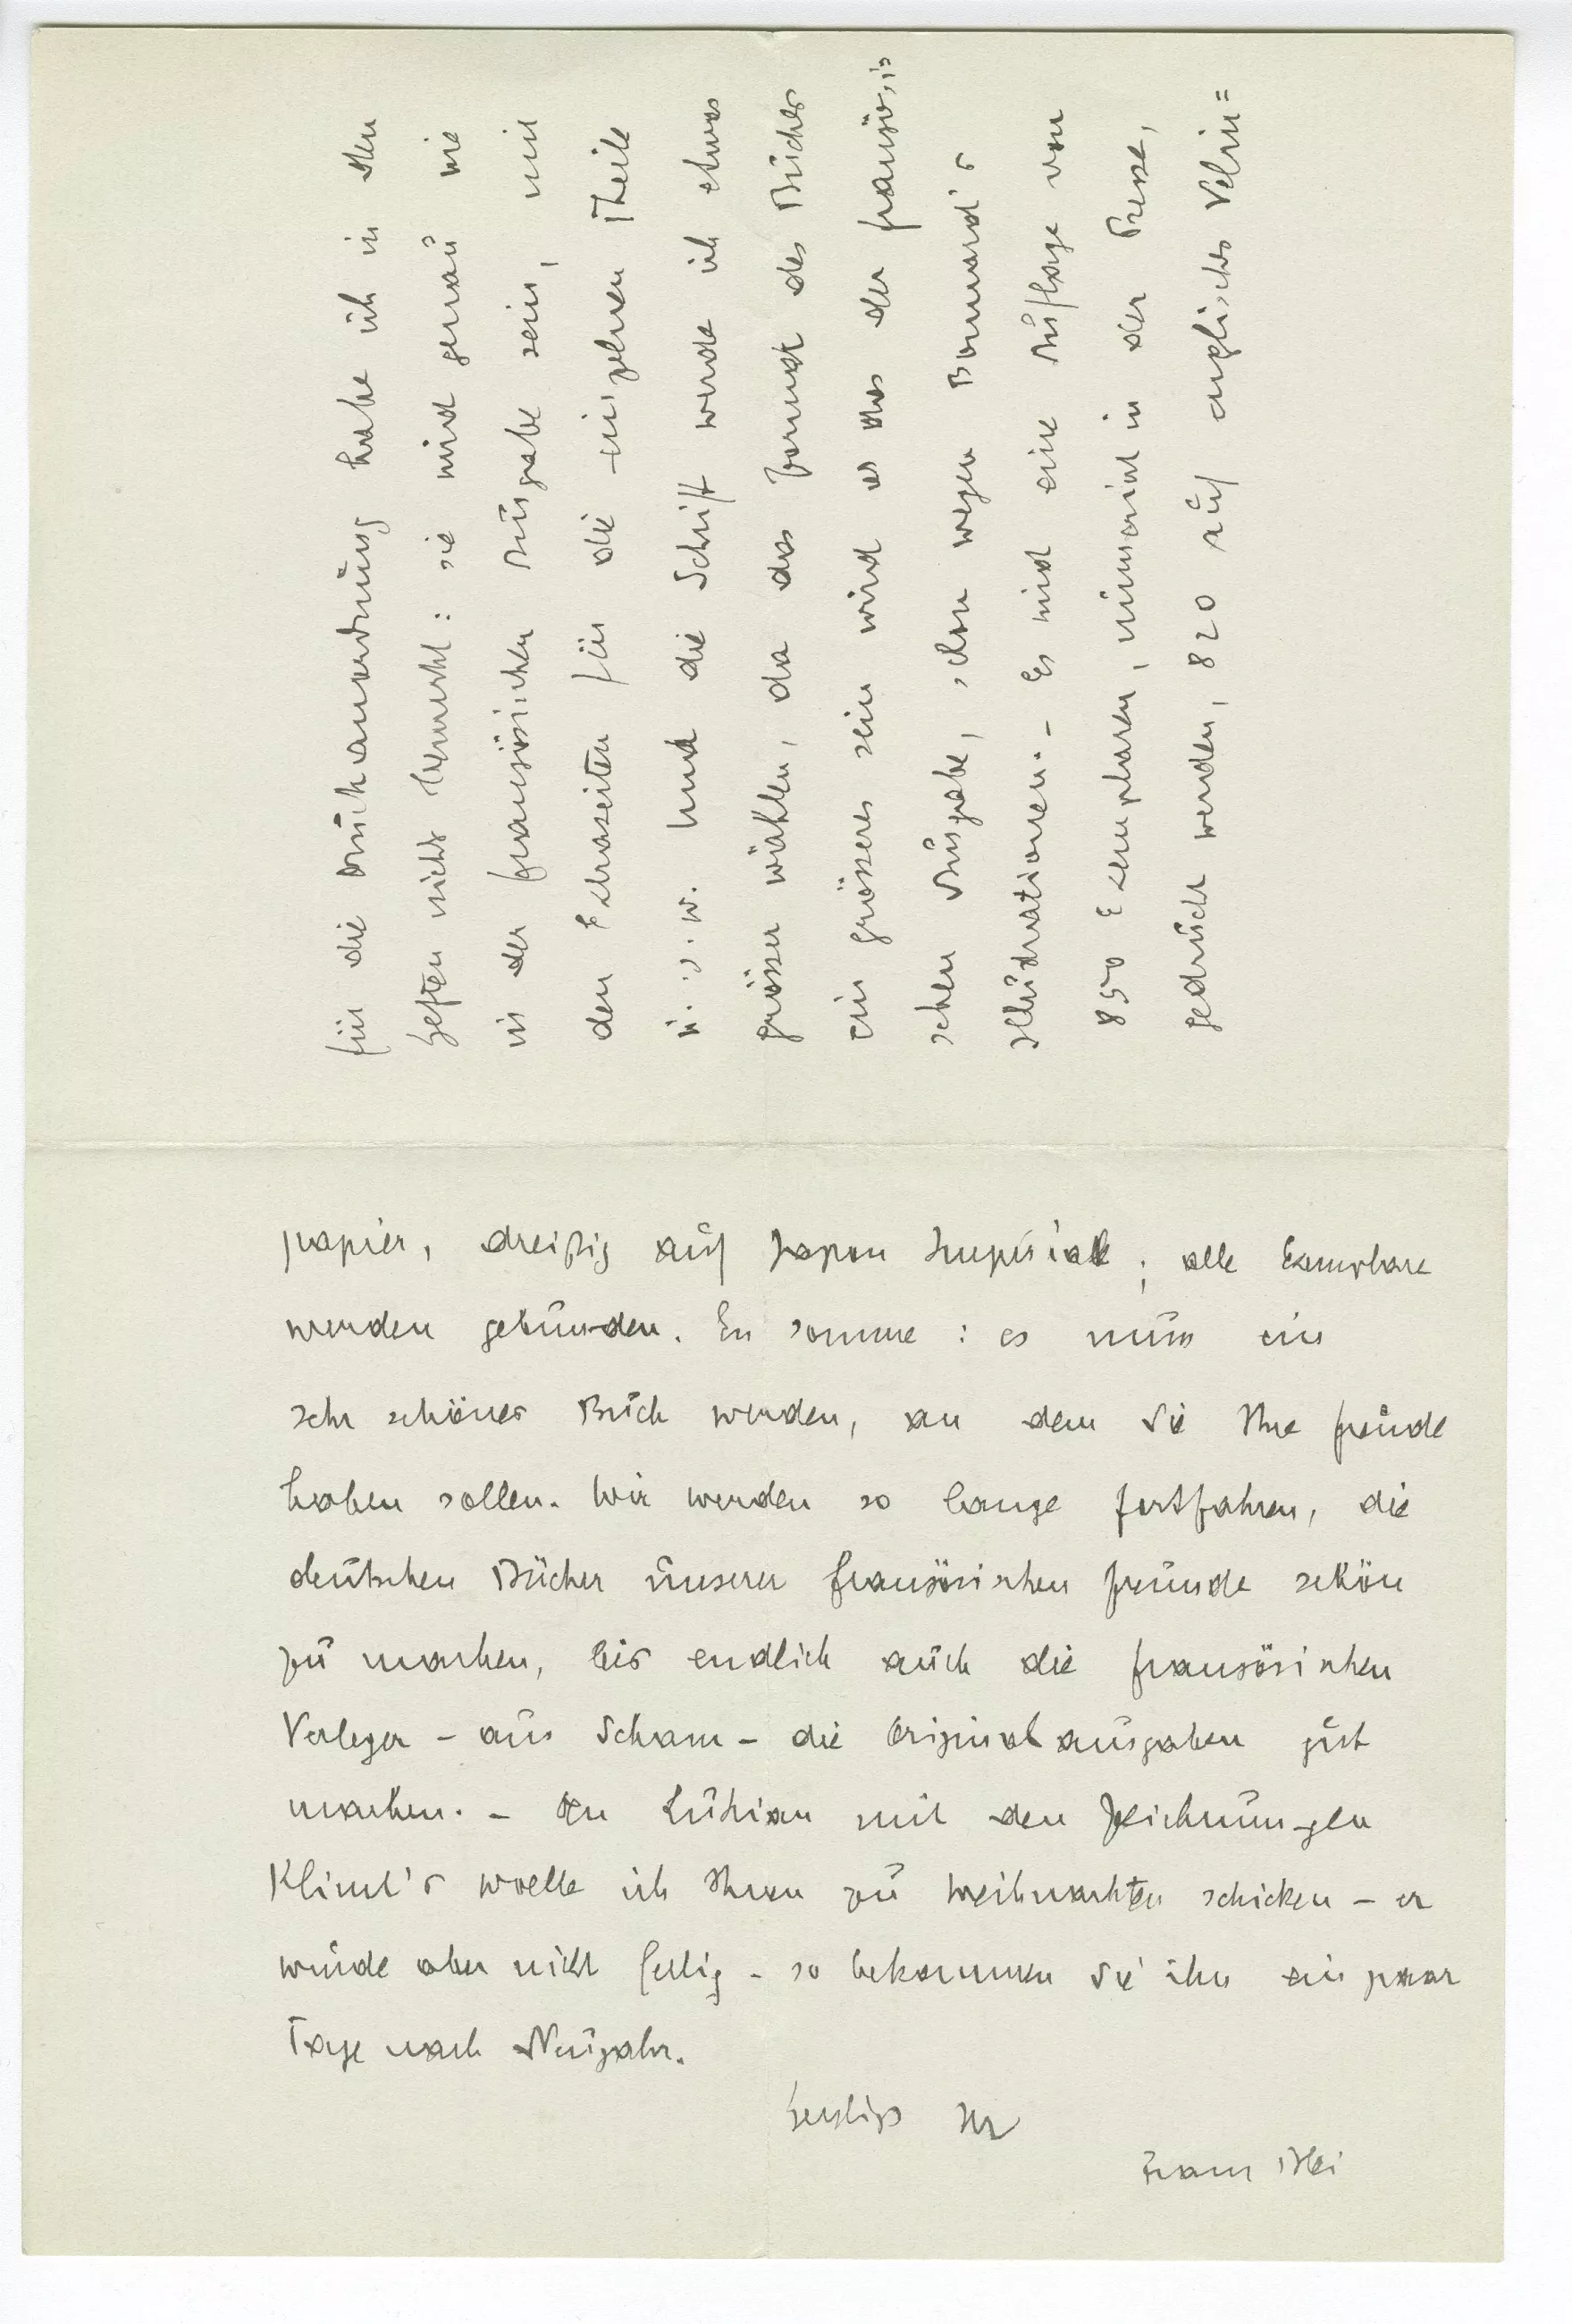 für die Druckanordnung habe ich in den
Heften nicht bemerkt: sie wird genau wie
in der französischen Ausgabe sein, mit
den Extraseiten für die einzelnen Theile
u. s. w. Und die Schrift werde ich etwas
grösser wählen, da das Format des Buches
ein grösseres sein wird als das der französi=
schen Ausgabe, schon wegen Bonnard's
Illustrationen. – Es wird eine Auflage von
850 Exemplaren, numeriert in der Presse,
gedruckt werden, 820 auf englisches Velin=
papier, dreißig auf Japon Impérial; alle Exemplare
werden gebunden. En somme: es muss ein
sehr schönes Buch werden, an dem Sie Ihre Freude
haben sollen. Wir werden so lange fortfahren, die
deutschen Bücher unserer französischen Freunde schön
zu machen, bis endlich auch die französischen
Verleger – aus Scham – die Originalausgaben gut
machen. – Den Lukian mit den Zeichnungen
Klimt's wollte ich Ihnen zu Weihnachten schicken – er
wurde aber nicht fertig – so bekommen Sie ihn ein paar
Tage nach Neujahr.
Herzlichst Ihr
Franz Blei